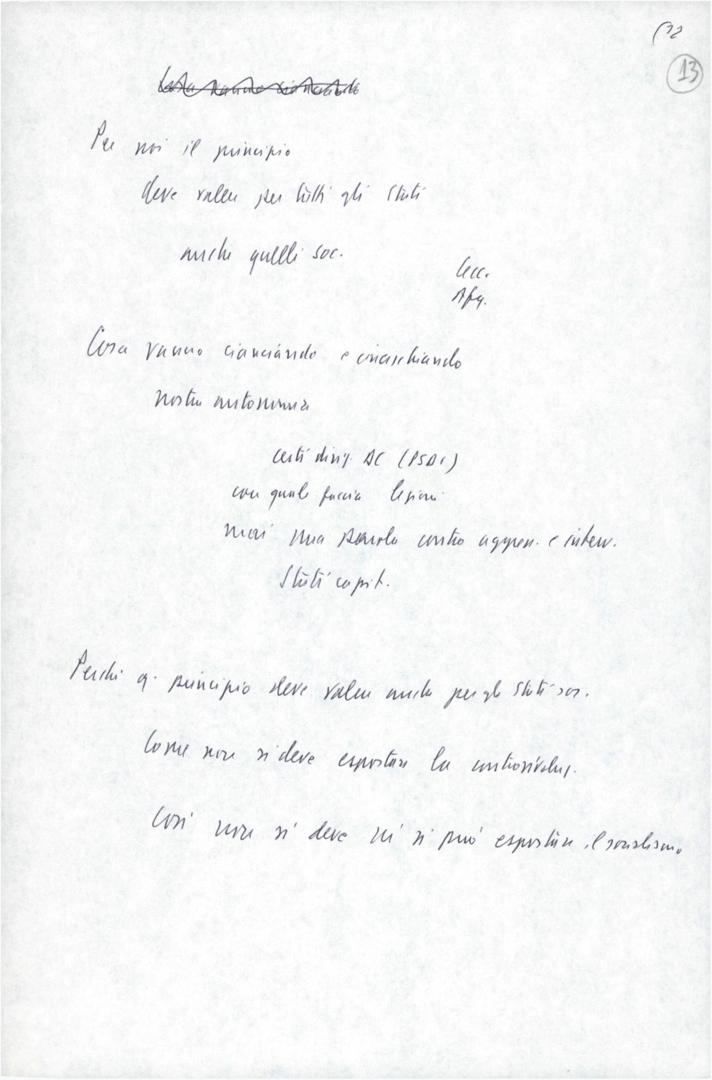 13
Per noi il principio
deve valere per tutti gli Stati
anche quelli soc.
Cec.
Afg.
Cosa vanno cianciando e
nostra autonomia
certi dirig. DC (PSDI)
con quale faccia lezioni
mai una parola contro aggress. e interv.
Stati capit.
Perché q. principio deve valere anche per gli Stati soc.
Come non si deve esportare la controrivoluz.
Così non si deve né si può esportare il socialismo